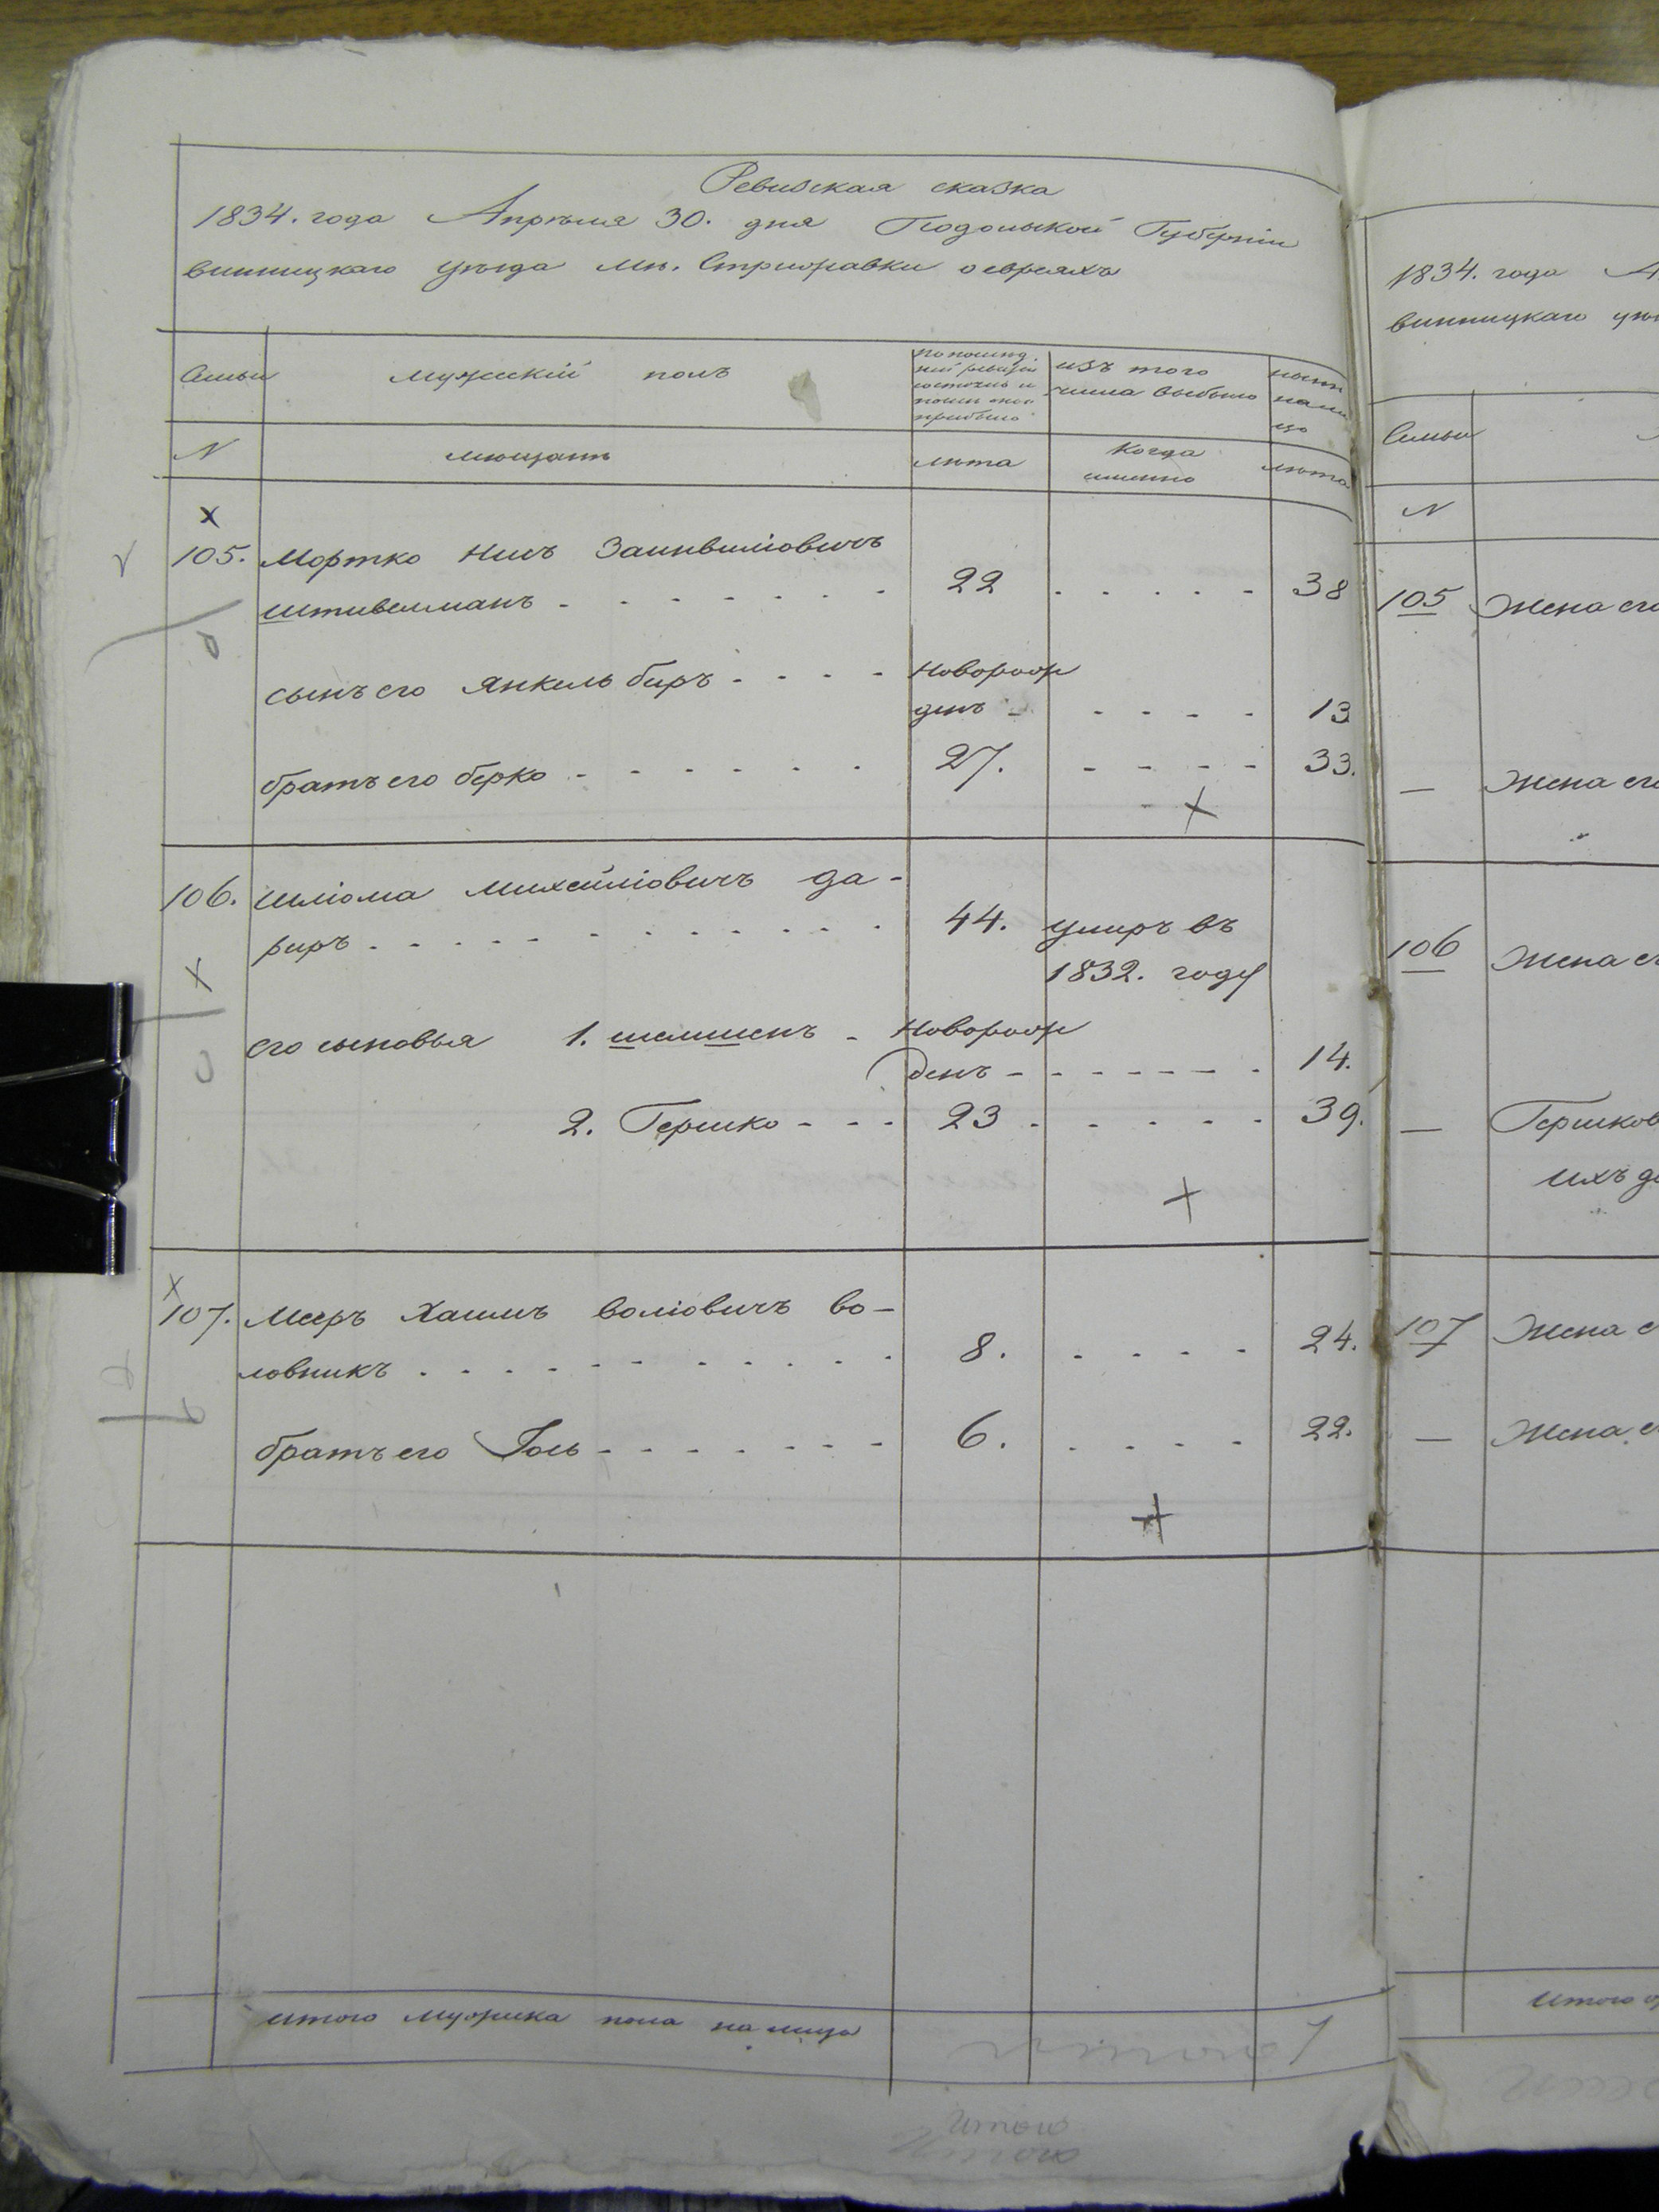 Ревизская сказка
1834. года Апрѣля 30. дня Подольской Губерніи
винницкаго уѣзда мѣ. Стрижавки о евреяхъ
Семьи
мужескій полъ
по послѣд.
ней ревизіи
состояло и
послѣ того
прибыло
изъ того
числа выбыло
нынѣ
на ли
цо
N
мещанѣ
лѣта
когда
именно
лѣта
х
105. Мортко Нисъ Зайнвиліовичъ
штивельманъ - - - - - - - 22 - - - - - 38
сынъ его Янкель беръ - - - - Новорож
денъ - - - - - 13
братъ его берко - - - - - - 27. - - - - 33.
106. Шліома Михелліовичъ да-
риръ - - - - - - - - - - 44. умеръ въ
1832. году
его сыновья 1. шемшенъ - Новорож
денъ - - - - - - - 14.
2. Гершко - - - 23 - - - - - 39.
х
107. Мееръ Хаимъ воліовичъ во-
ловникъ - - - - - - - - - - 8. - - - - 24.
братъ его Іось - - - - - - - 6. - - - - 22.
итого мужеска пола на лицо
итого
итого
1834. года
винницкаго
Семьи
N
105 Жена его
— Жена его
106 Жена
— Гершков
ихъ
107 Жена
— Жена
итого